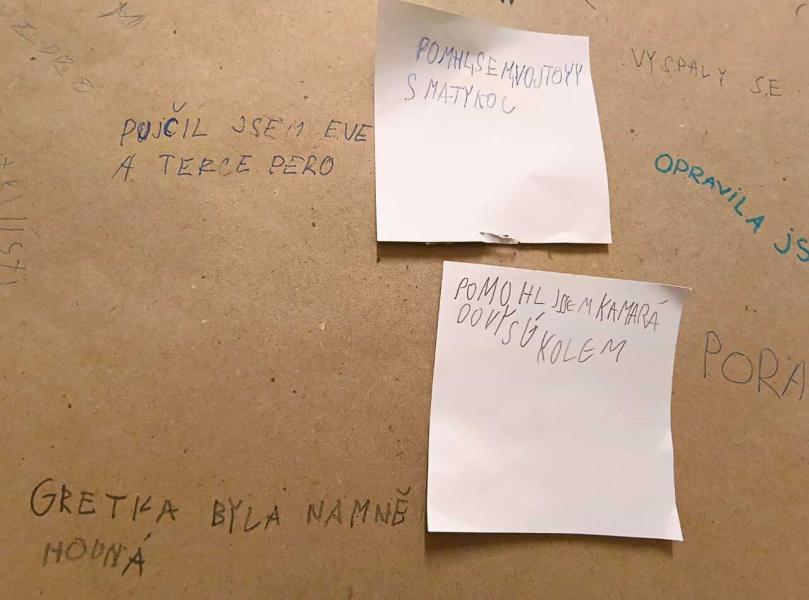 POMHLSEMVOJTOVY
S MATYKOU
VYSPALY SE
PUJČIL JSEM EVE
A TERCE PERO
OPRAVILA JS
POMOHL JSEM KAMARÁ
DOVYSÚ
KOLEM
PORA
GRETKA BYLA NAMNĚ
HODNÁ